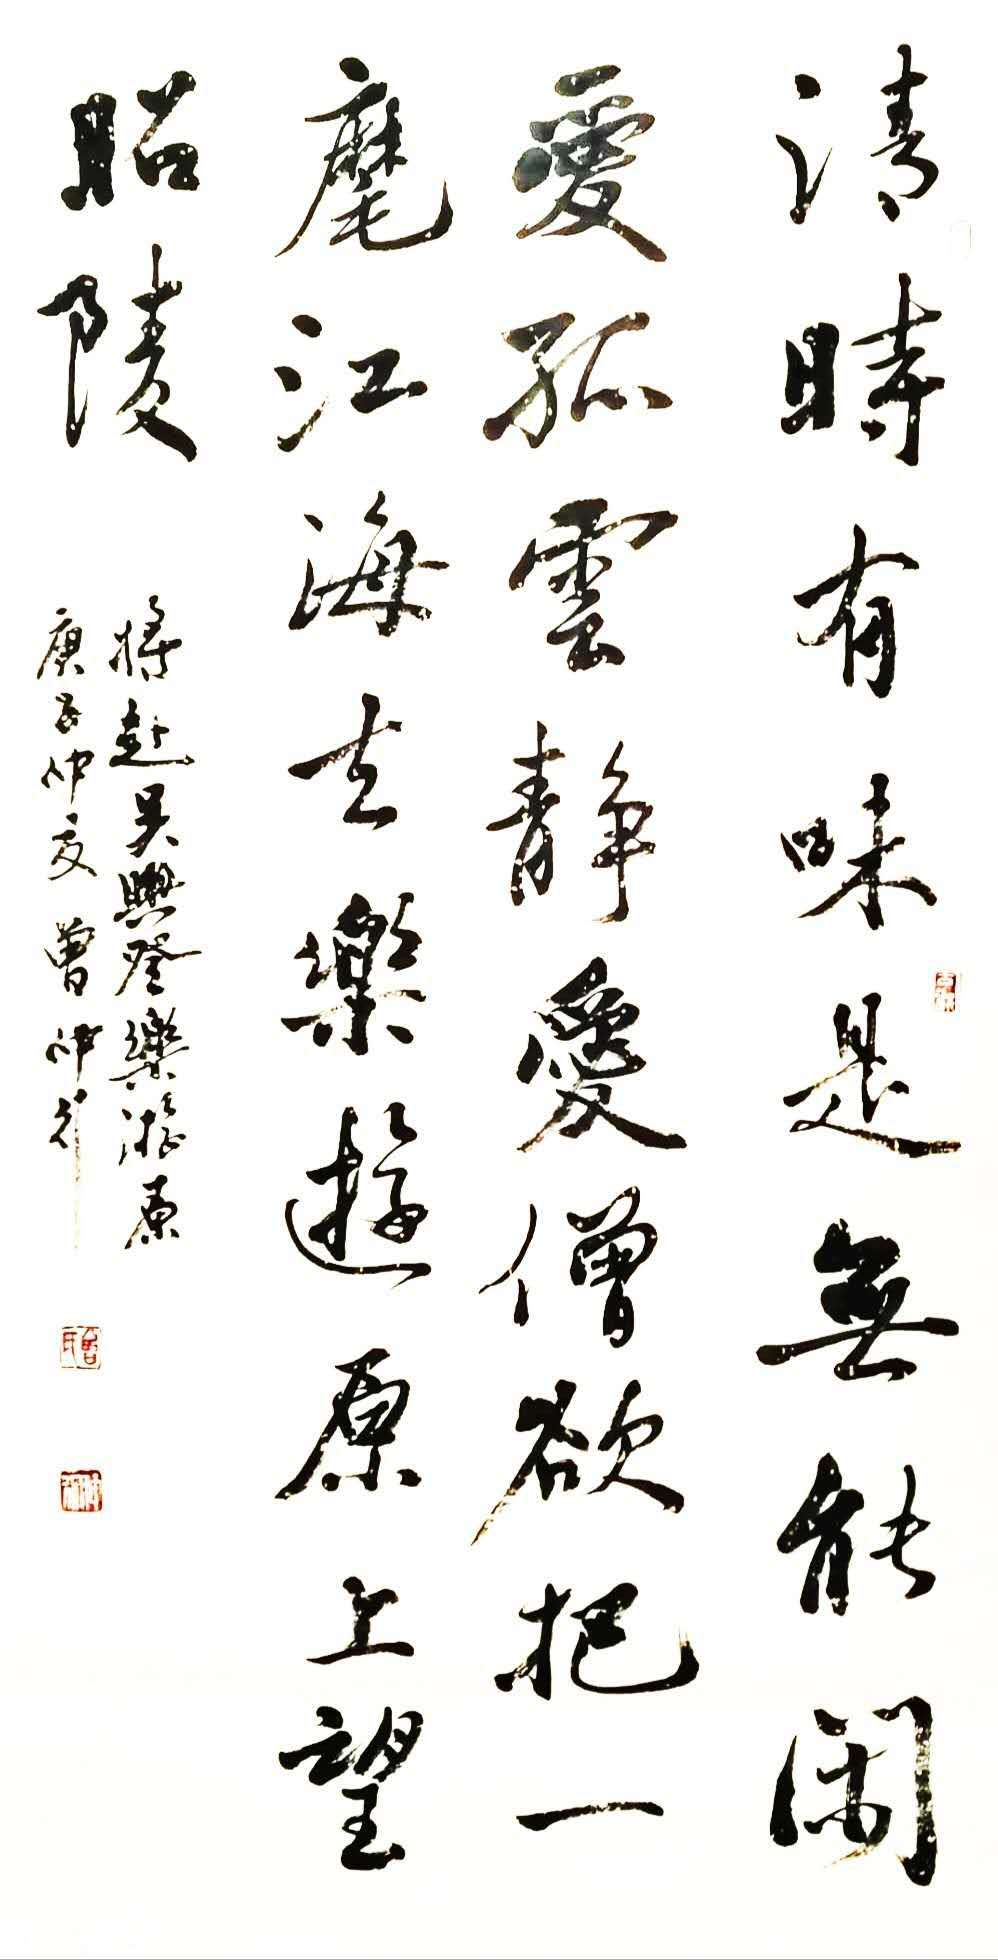 清時有味是無能閑
愛孤雲靜愛僧欲把一
麾江海去樂遊原上望
昭陵
將赴吳興登樂游原
庚子仲夏曾仲